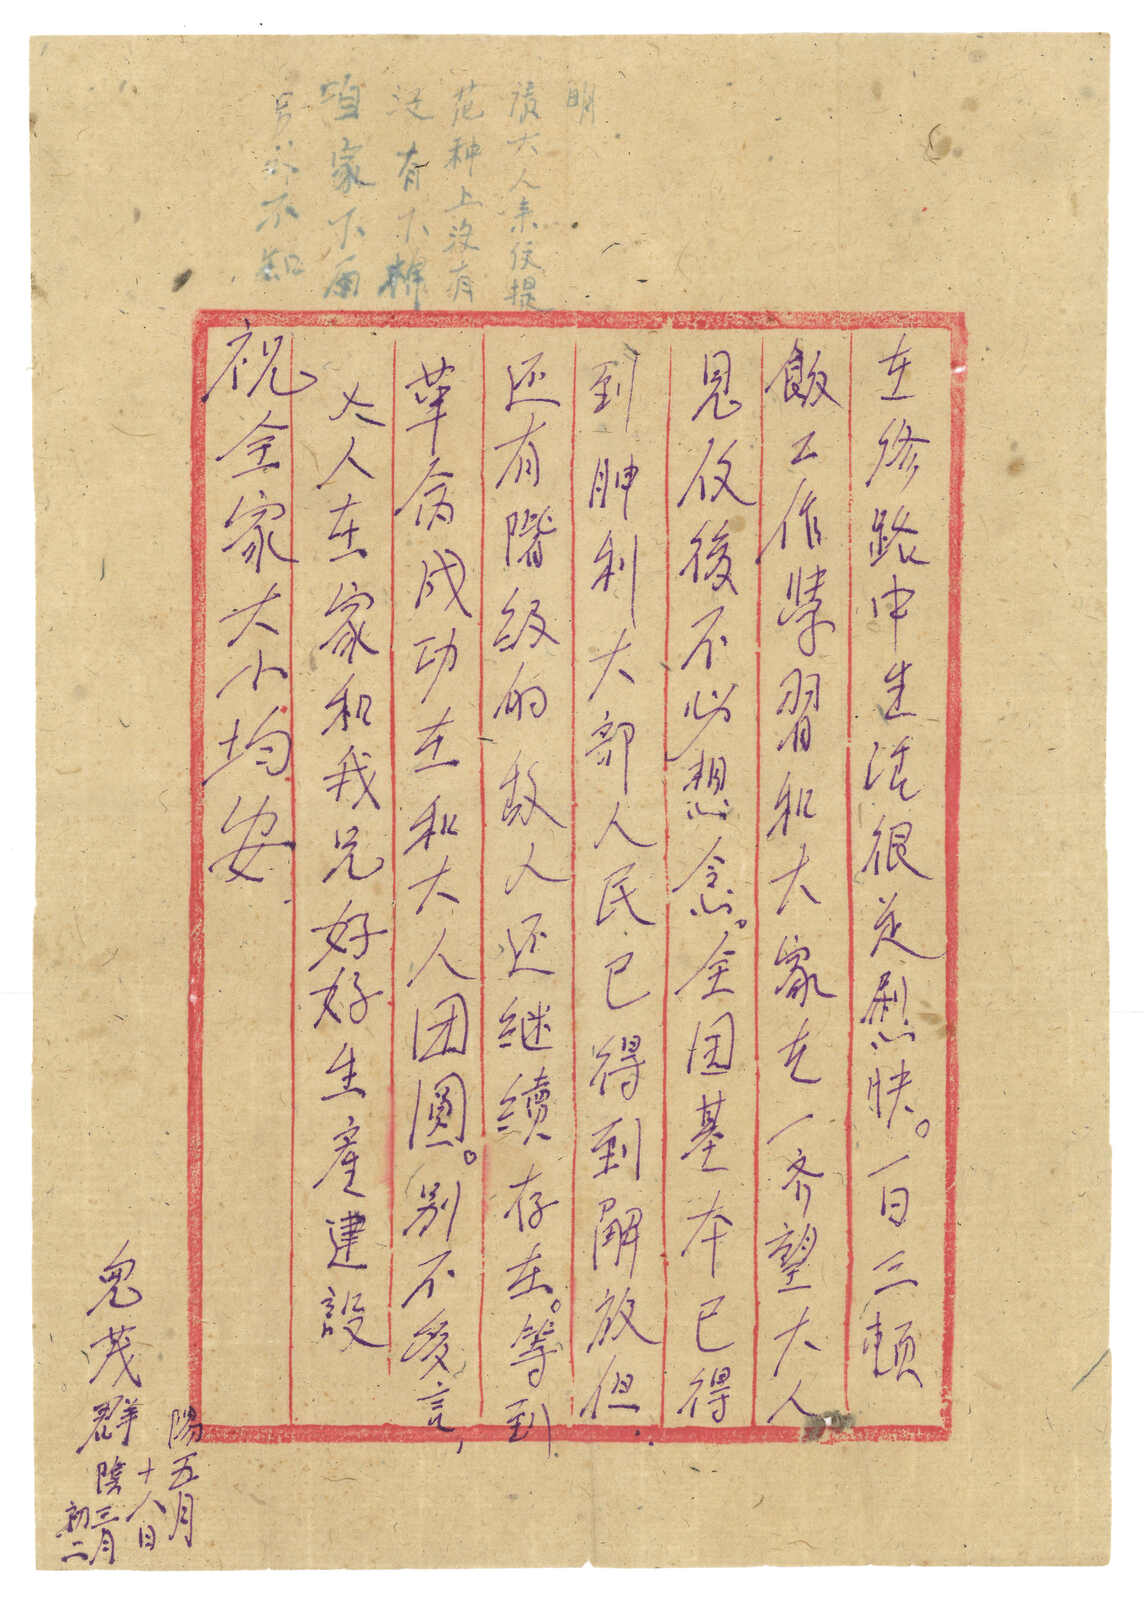 明
大人来信提
花种上没有
没有下棉
咱家下雨
另外不知
在修路中生活很是愉快。一日三顿
飯工作學習和大家在一齐望大人
見放後不必想念。全国基本已得
到胂利大部人民已得到解放但
还有階级的敌人还继續存在。等到
革命成功在和大人团圆。别不多言,
大人在家和我兄好好生産建設
祝全家大小均安
兒茂群
陽五月
十八日
陰三月
初二